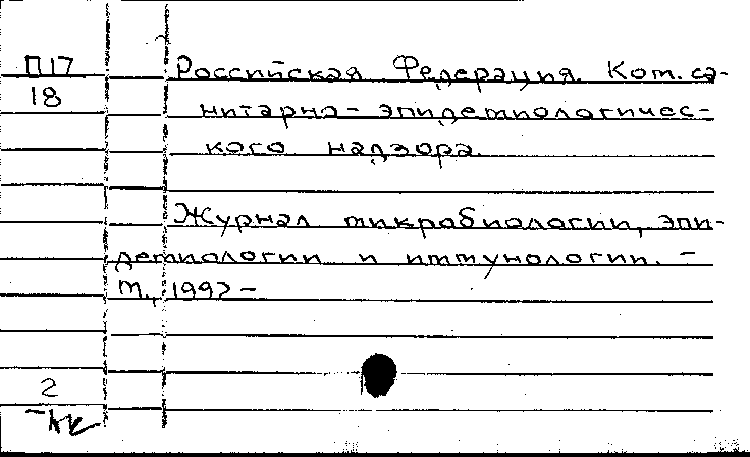 П17
18
Российская Федерация. Ком. са-
нитарно-эпидемиологичес-
кого надзора.
Журнал микробиологии, эпи-
демиологии и иммунологии. -
М., 1992-
2